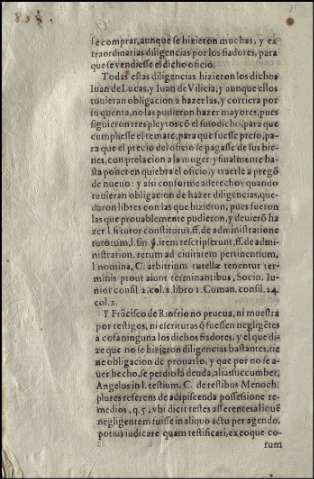 se comprar, aunque se hizieron muchas, y ex
traordinarias diligencias por los fiadores, para
que se vendiesse el dicho oficio.
Todas estas diligencias hizieron los dichos
Iuan de Lucas, y Iuan de Vilicia, y aunque ellos
tuuieran obligacion a hazerlas, y corriera por
su quenta, no las pudieron hazer mayores, pues
siguieron tres pleytos cō el susodicho, para que
cumpliesse el remate, para que fuesse preso, pa-
ra que el precio del oficio se pagasse de sus bie-
nes, con prelacion a la muger y finalmente ha-
sta poner en quiebra el oficio, y traerle a pregō
de nueuo: y assi conforme a derecho, quando
tuuieran obligacion de hazer diligencias, que-
daron libres con las que hizieron, pues fueron
las que prouablemente pudieron, y deuierō ha
zer l. si tutor constitutus, ff. de administratione
tutorum, l. fin. §. item rescripserunt, ff. de admi-
nistration. rerum ad ciuitatem pertinentium,
l. nomina, C. arbitrium tutellæ tenentur ter-
minis prout alium terminantibus, Socio. Iu-
nior consil 2. col. 2. libro 1. Cuman. consil. 24.
col. 2.
Y Frācisco de Riofrio no prueua, ni muestra
por testigos, ni escrituras q̄ fuessen negligētes
a cosa ninguna los dichos fiadores, y el que di-
ze que no se hizieron diligencias bastantes, tie
ne obligacion de prouarlo, y que por no se a-
uer hecho, se perdio la deuda, alias succumber,
Angelus in l. testium, C. de testibus Menoch.
plures referens de adipiscenda possessione re-
medios, q. 5. vbi dicit testes asserentes aliquē
negligentem fuisse in aliquo actu per agendo,
potius iudicare quam testificari, ex eo que co-
rum